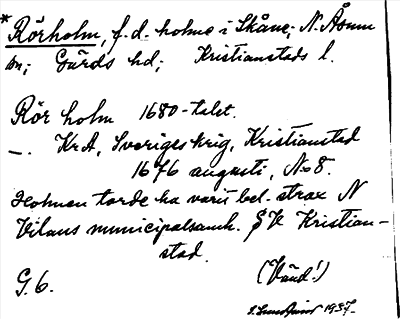 *Rörholm, f. d. holme i Skåne; N. Åsum
sn; Gärds hd; Kristianstads l.
Rör holm 1680-talet.
–. KrA, Sveriges krig, Kristianstad
1676 augusti, No 8.
Holmen torde ha varit bel. strax N
Vilans municipalsamh. SV Kristian-
stad.
G. 6.
(Vänd!)
1937.